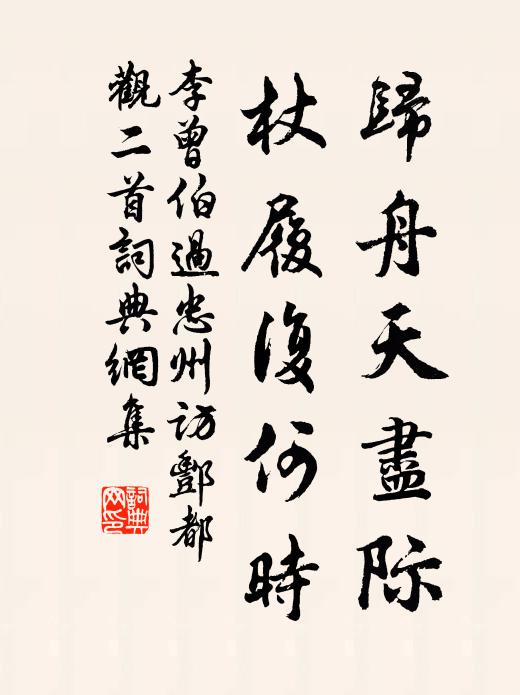 歸舟天盡际
杖履復何時
李曾伯過忠州访酆都
觀二首詞典網集
詞典
网印